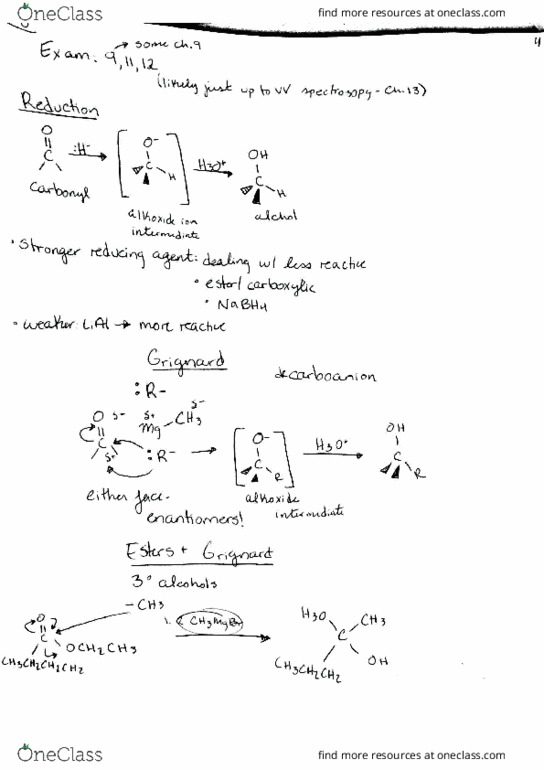 OneClass
find more resources at oneclass.com
4
→ some ch.9
Exam: 9, 11, 12
(likely just up to UV spectrosopy - Ch.13)
Reduction
O
C
:H⁻
O⁻
C
H
H3O+
OH
C
H
Carbonyl
alkoxide ion
intermediate
alchol
• Stronger reducing agent: dealing w/ less reactive
• ester/ carboxylic
• NaBH4
• weaker: LiAl → more reactive
Grignard
carboanion
:R-
O δ-
δ+
Mg
δ-
CH3
C
δ+
:R-
O⁻
C
R
H3O+
OH
C
R
either face-
enantiomers!
alkoxide
intermediate
Esters + Grignard
3° alcohols
-CH3
O
C
OCH2CH3
CH3CH2CH2CH2
1. 2 CH3MgBr
H3O
CH3
C
CH3CH2CH2
OH
OneClass
find more resources at oneclass.com